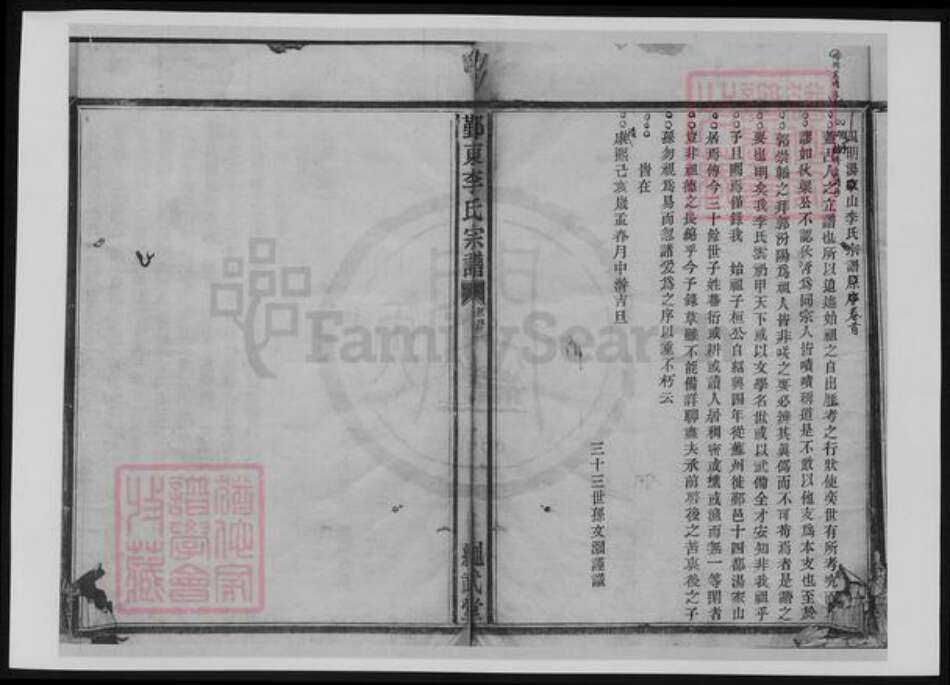 四明湯家山李氏宗譜原序 卷首
蓋古人之立譜也所以追遠始祖之自出歷考之行狀使奕世有所考究
譜如狄梁公不認狄青為同宗人皆嘖嘖稱道是不敢以他支為本支也至於
郭崇韜之拜郭汾陽為祖人皆非咲之要必辨其真僞而不可苟焉者是譜之
要也明矣我李氏雲礽甲天下或以文學名世或以武備全才安知非我祖乎
予且闕焉僅錄我 始祖子桓公自紹興四年從蘇州徙鄞邑十四都湯家山
居焉傳今三十餘世子姓蕃衍或耕或讀人居稠密或樵或漁而無一等閒者
豈非祖德之長綿乎今予錄草雖不能備詳聊盡夫承前啓後之苦衷後之子
孫勿視為易而忽諸爰為之序以垂不朽云
旹在
康熙己亥歲孟春月中澣吉旦
三十三世孫文瀾謹識
鄞東李氏宗譜
繩武堂
FamilySear
譜學會
收藏